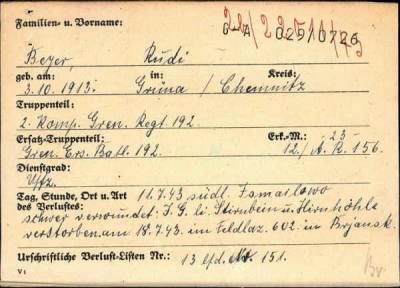 Familien- u. Vorname:
G-A 02510726
Beyer, Rudi
geb. am: in: Kreis:
3.10.1913. Grüna / Chemnitz
Truppenteil:
2. Komp. Gren. Regt. 192.
Ersatz-Truppenteil: Erk.-M.: -23-
Gren. Ers. Batl. 192. 12./A.R. 156.
Dienstgrad:
Uffz.
Tag, Stunde, Ort u. Art des Verlustes: 11.7.43 südl. Ismailowo
schwer verwundet. I.G. li. Stirnbein u. Hirnhöhle
verstorben am 18.7.43. im Feldlaz. 602. in Brjansk.
Urschriftliche Verlust-Listen Nr.: 13 lfd. Nr. 151.
V 1